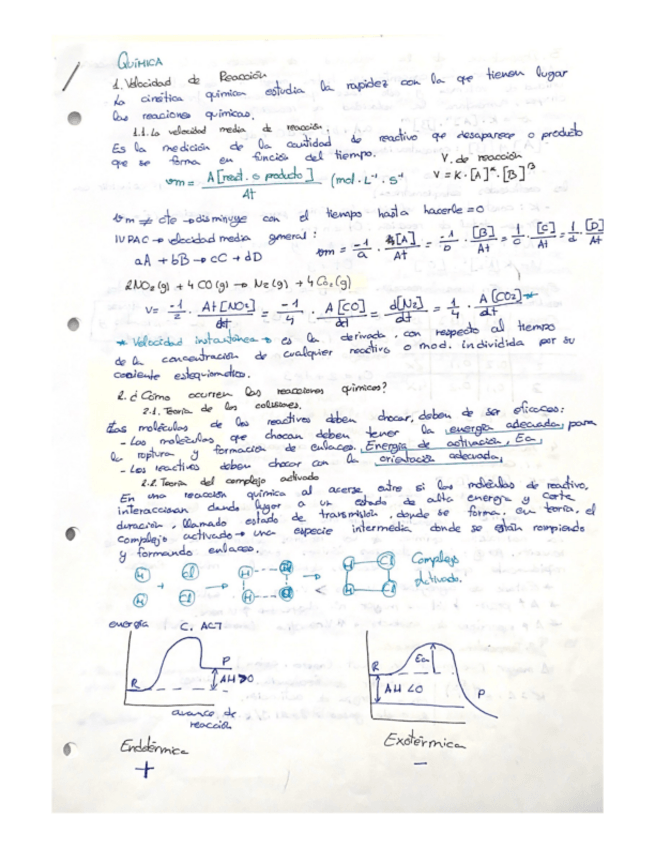 QUÍMICA
1. Velocidad de Reacción
La cinética química estudia la rapidez con la que tienen lugar
las reaciones químicas.
1.1. La velocidad media de reacción.
Es la medición de la cantidad de reactivo que desaparece o producto
que se forma en función del tiempo.
V. de reacción
vm = Δ[react. o producto] / Δt (mol · L⁻¹ · s⁻¹
V = K · [A]^α · [B]^β
vm ≠ cte → disminuye con el tiempo hasta hacerse = 0
IUPAC → velocidad media general:
aA + bB → cC + dD
vm = -1/a · Δ[A]/Δt = -1/b · [B]/Δt = 1/c · [C]/Δt = 1/d · [D]/Δt
2NO₂(g) + 4CO(g) → N₂(g) + 4CO₂(g)
V = -1/2 · Δt[NO₂]/dt = -1/4 · Δ[CO]/dt = d[N₂]/dt = 1/4 · Δ[CO₂]/dt *
* Velocidad instantánea → es la derivada con respecto al tiempo
de la concentración de cualquier reactivo o prod. individida por su
coeciente estequiometrico.
2. ¿Cómo ocurren las reacciones químicas?
2.1. Teoría de las colisiones.
Las moléculas de los reactivos deben chocar, deben de ser eficaces:
- Las moléculas que chocan deben tener la energía adecuada para
la ruptura y formación de enlaces. Energía de activación, Ea
- Los reactivos deben chocar con la orientación adecuada
2.2. Teoría del complejo activado
En una reacción química al acerse entre si las moléculas de reactivo,
interaccionan dando lugar a un estado de alta energía y corta
duración, llamado estado de transmisión, donde se forma, en teoría, el
complejo activado → una especie intermedia donde se están rompiendo
y formando enlaces.
H Cl H H H Cl Complejo
H + Cl → H Cl → < H Cl activado.
energía C. ACT
P Ea
R ΔH>0 R
ΔH<0 P
avance de
reacción
Endotérmica Exotérmica
+ −